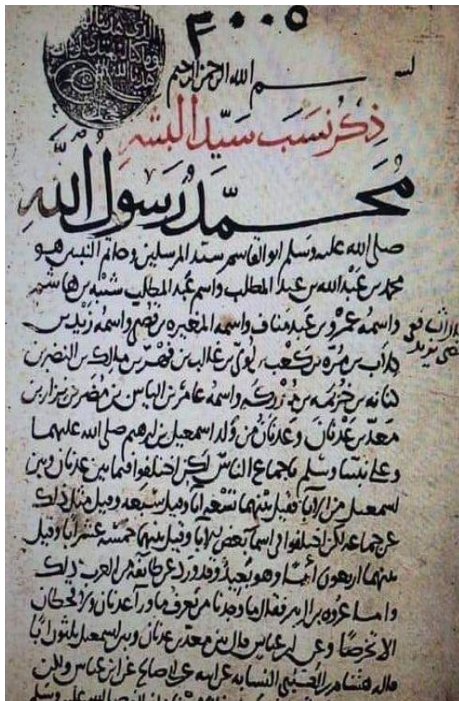 ٣٠٠٥
بسم الله الرحمن الرحيم
ذكر نسب سيد البشر
محمد رسول الله
صلى الله عليه وسلم ابو القاسم سيد المرسلين وخاتم النبيين هو
محمد بن عبد الله بن عبد المطلب واسم عبد المطلب شيبة بن هاشم
واسمه عمرو بن عبد مناف واسمه المغيره بن قصي واسمه زيد بن
كلاب بن مرة بن كعب بن لوي بن غالب بن فهر بن مالك بن النضر بن
كنانه بن خزيمه بن مدركه واسمه عامر بن الياس بن مضر بن نزار بن
معد بن عدنان وعدنان من ولد اسمعيل بن ابرهيم صلى الله عليهما
وعلى نبينا وسلم باجماع الناس لكن اختلفوا فيما بين عدنان وبين
اسمعيل من الابا فقيل بينهما تسعه ابا وقيل سبعه وقيل مثل ذلك
عن جماعه لكن اختلفوا في اسما بعض الابا وقيل بينهما خمسة عشر ابا وقيل
بينهما اربعون ابا وهو بعيد وقد ورد عن طايفه من العرب ذلك
واما عروه بن الزبير فقال ما وجدنا من يعرف ما ورا عدنان ولا قحطان
الا تخرصا وعن ابن عباس قال بين معد بن عدنان وبين اسمعيل ثلثون ابا
قاله هشام بن الكلبي النسابه عن ابيه عن ابي صالح عن ابن عباس